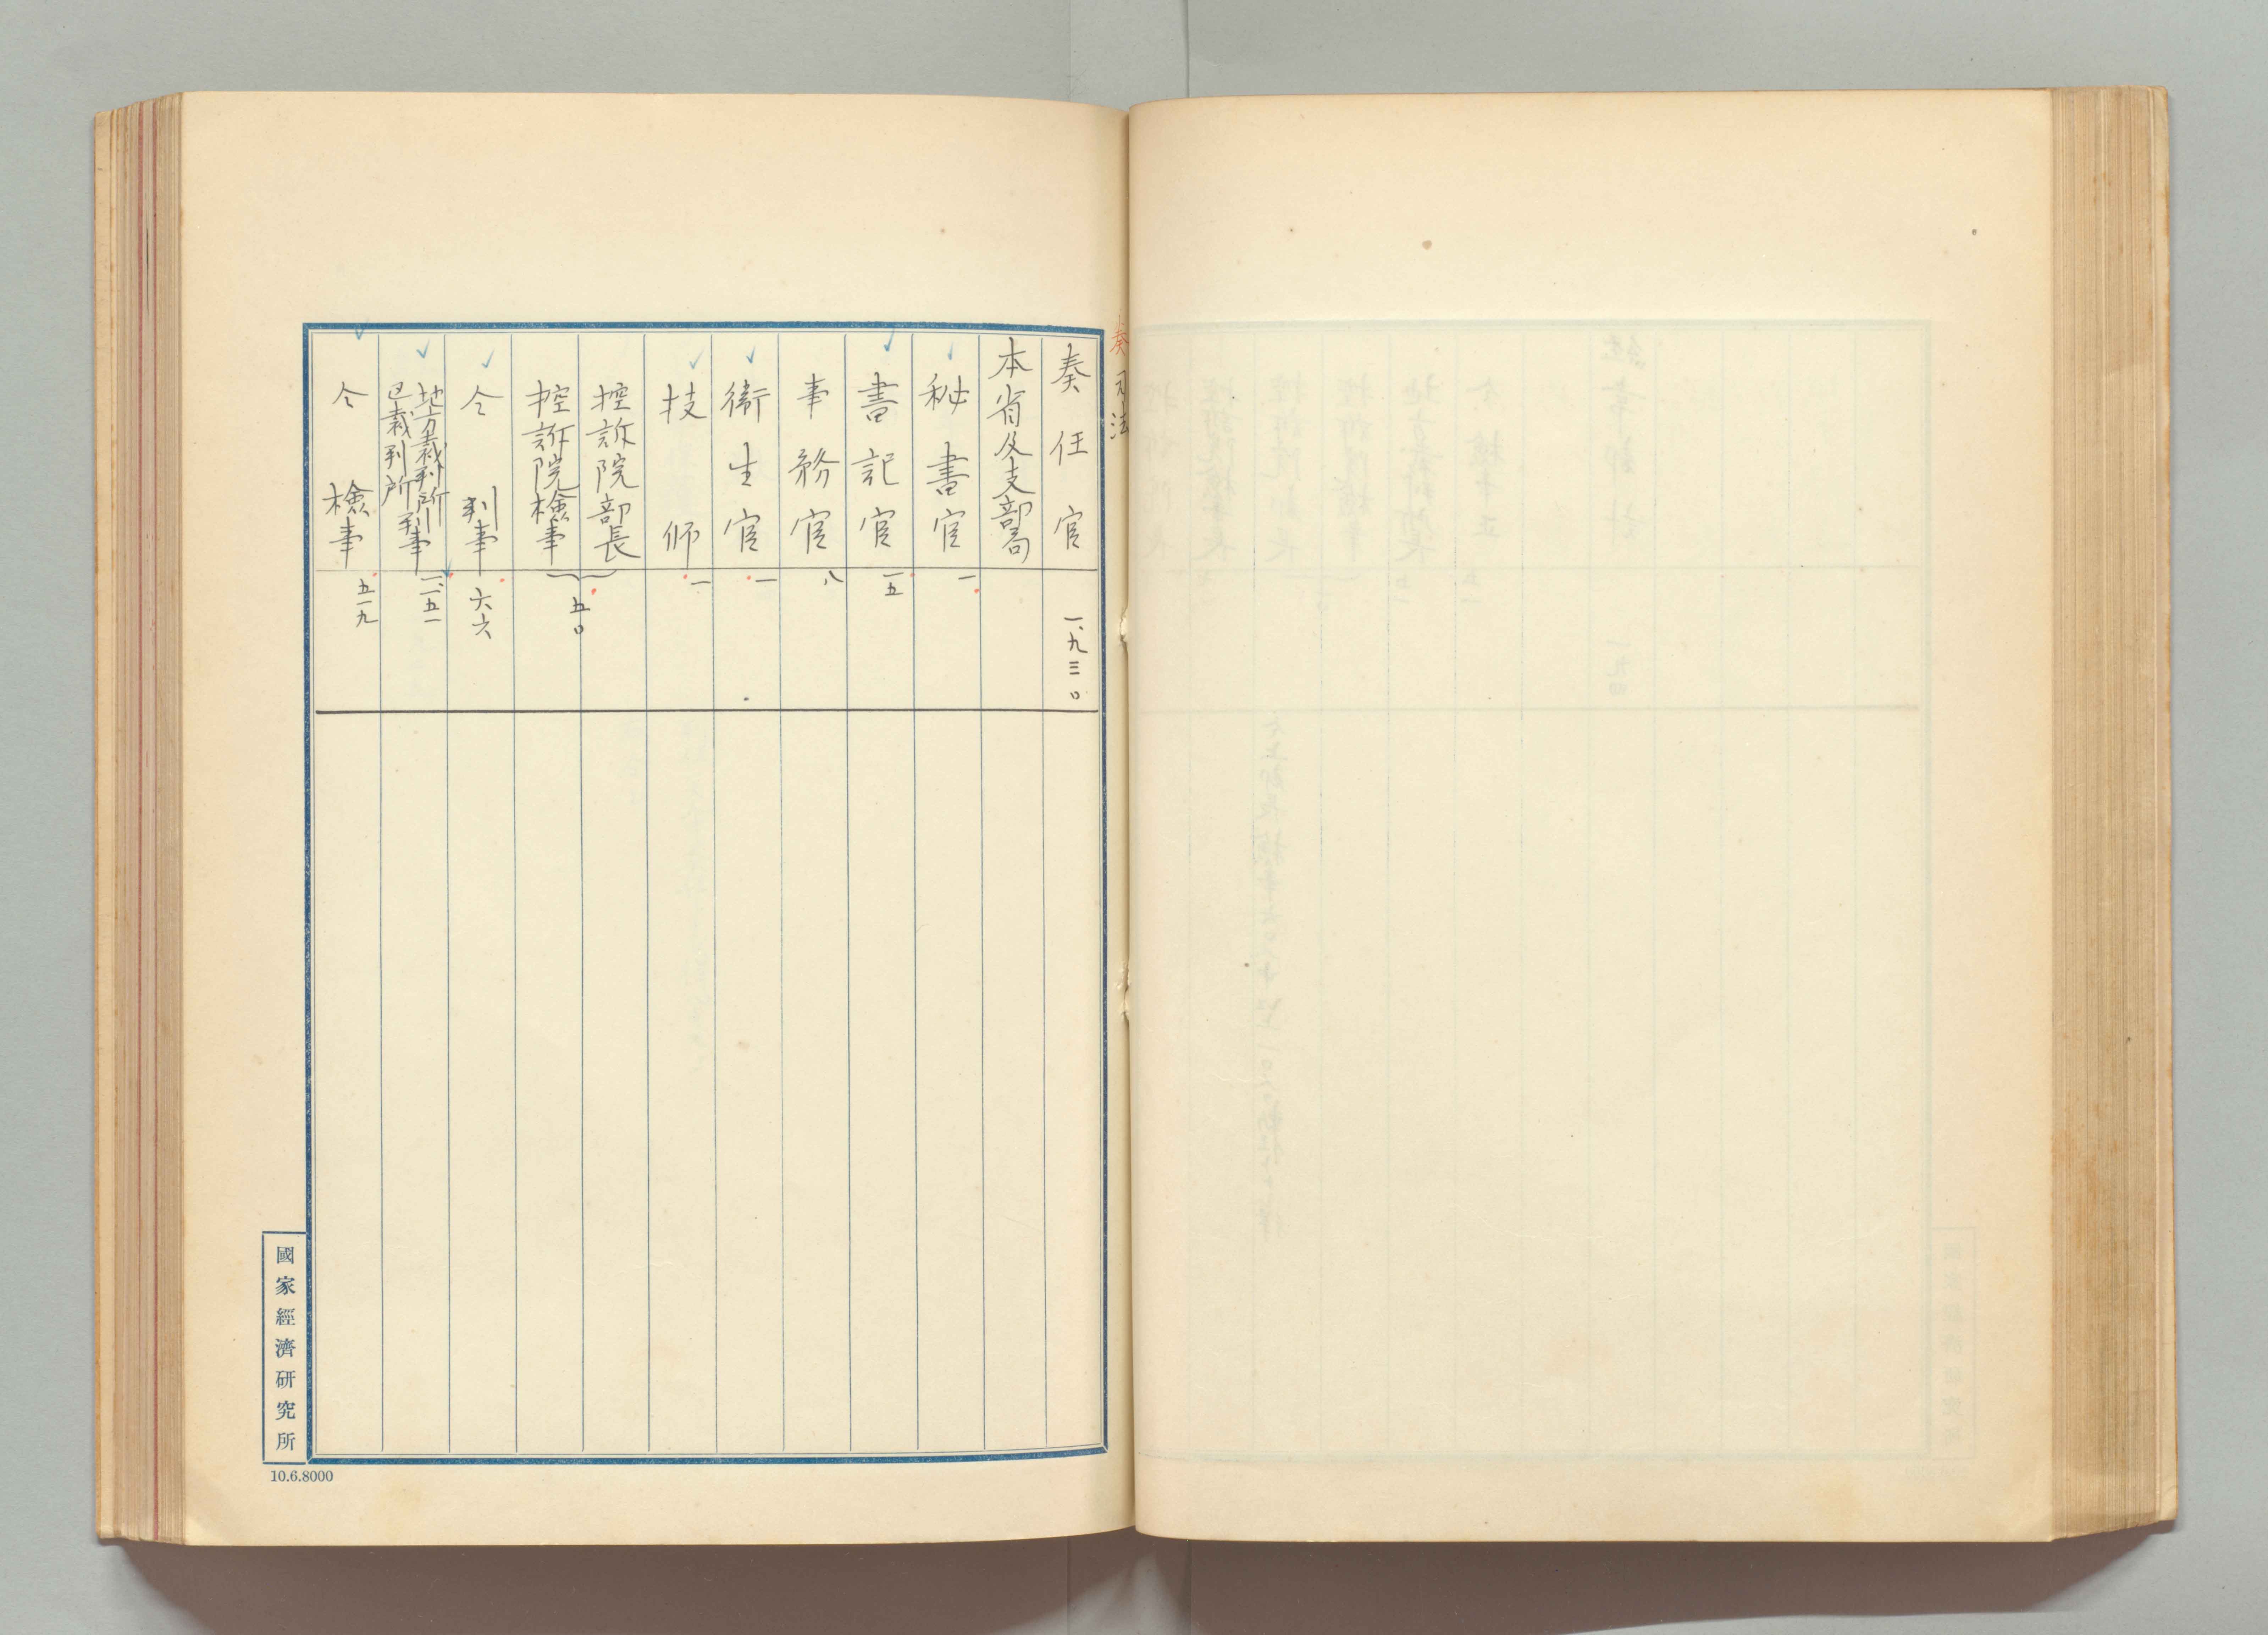 奏 司法
奏任官 一、九三〇
本省及支部局
秘書官 一
書記官 一五
事務官 八
衛生官 一
技師 一
控訴院部長
控訴院検事 五〇
仝 判事 六六
地方裁判所
区裁判所 判事
仝 検事 五一九
國家經濟研究所
10.6.8000